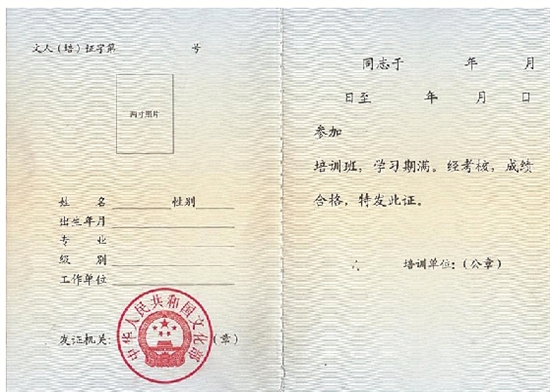 文人(培)证字第 号
两寸照片
姓 名 性别
出生年月
专 业
级 别
工作单位
发证机关: (章)
中华人民共和国文化部
同志于 年 月
日至 年 月 日
参加
培训班,学习期满。经考核,成绩
合格,特发此证。
培训单位:(公章)